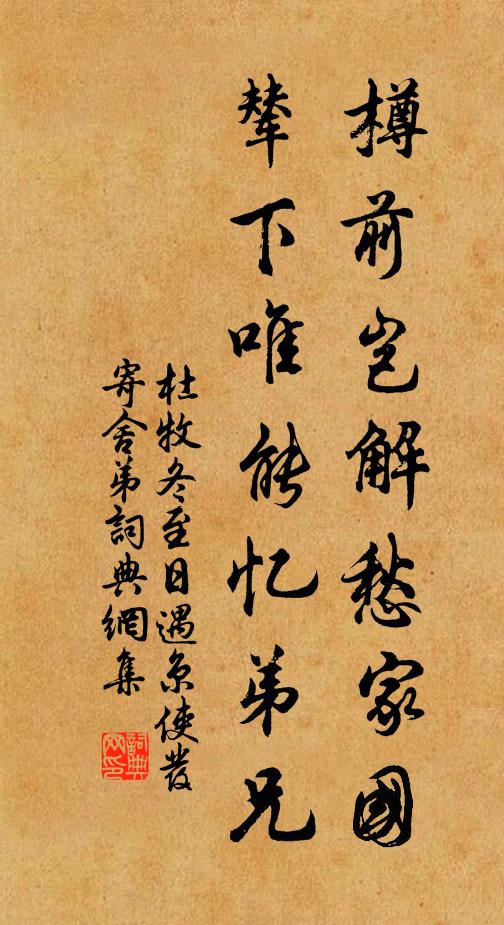 樽前岂解愁家國
輦下唯能忆弟兄
杜牧冬至日遇京使發
寄舍弟詞典網集
詞典
网印